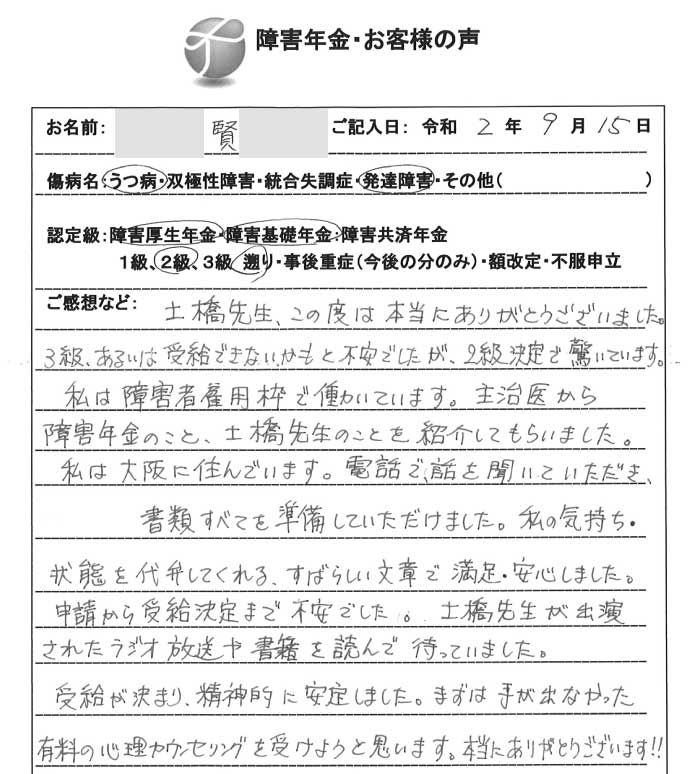 障害年金・お客様の声
お名前: 賢 ご記入日: 令和 2 年 9 月 15 日
傷病名:うつ病・双極性障害・統合失調症・発達障害・その他( )
認定級:障害厚生年金・障害基礎年金・障害共済年金
1級、2級、3級 遡り・事後重症(今後の分のみ)・額改定・不服申立
ご感想など: 土橋先生、この度は本当にありがとうございました。
3級、あるいは受給できないかもと不安でしたが、2級決定で驚いています。
私は障害者雇用枠で働いています。主治医から
障害年金のこと、土橋先生のことを紹介してもらいました。
私は大阪に住んでいます。電話で、話を聞いていただき、
書類すべてを準備していただけました。私の気持ち・
状態を代弁してくれる、すばらしい文章で満足・安心しました。
申請から受給決定まで不安でした。土橋先生が出演
されたラジオ放送や書籍を読んで待っていました。
受給が決まり、精神的に安定しました。まずは手が出なかった
有料の心理カウンセリングを受けようと思います。本当にありがとうございます!!